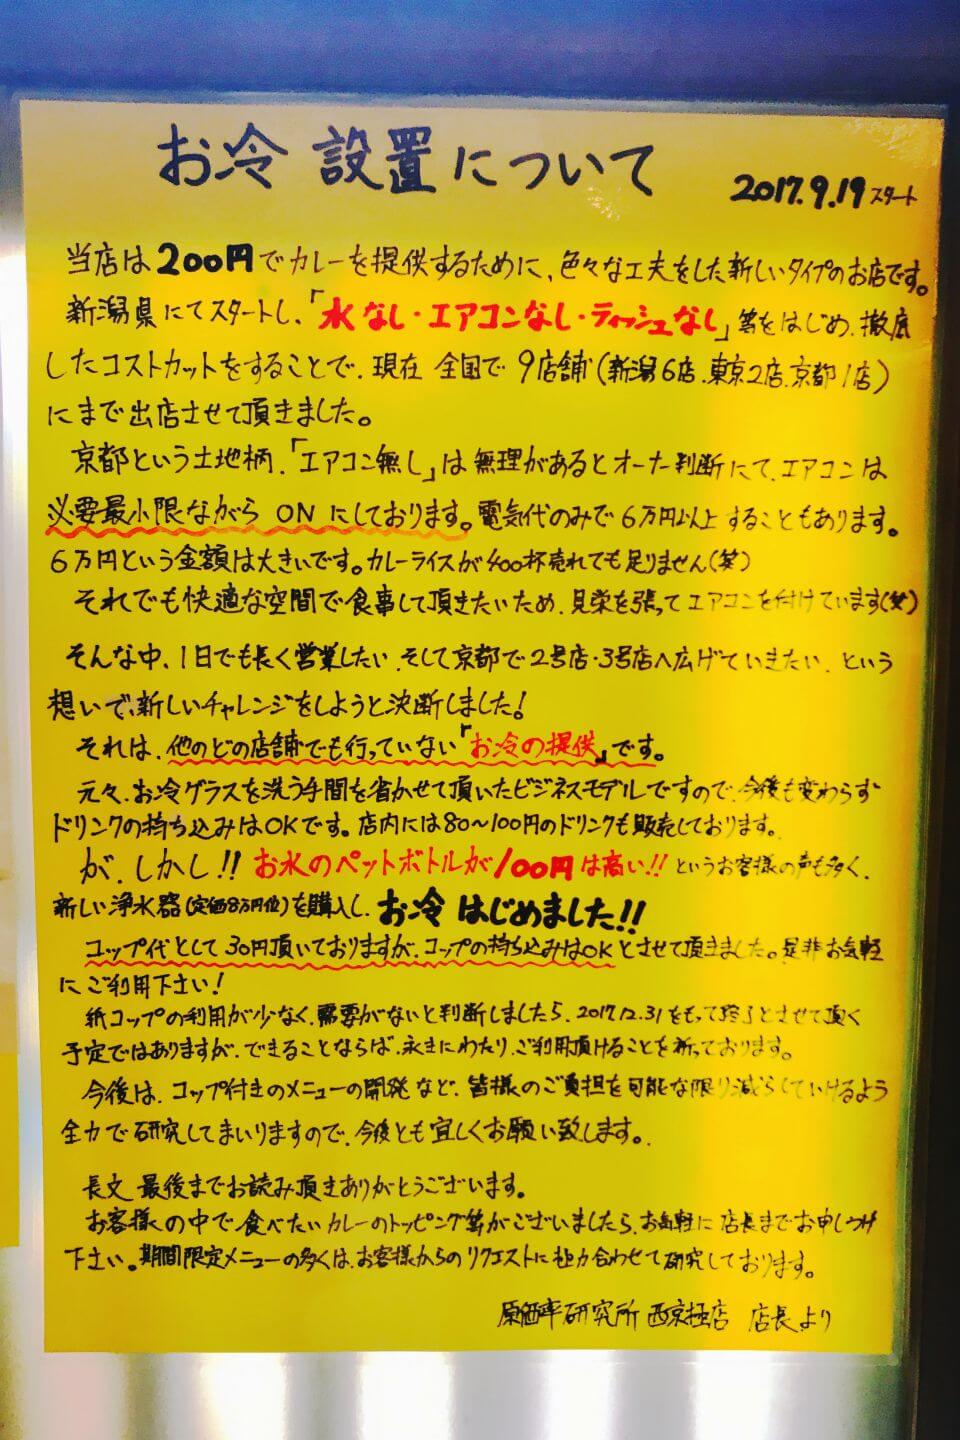 お冷 設置について
2017.9.19 スタート
当店は200円でカレーを提供するために、色々な工夫をした新しいタイプのお店です。
新潟県にてスタートし、「水なし・エアコンなし・ティッシュなし」等をはじめ、徹底
したコストカットをすることで、現在 全国で 9店舗(新潟6店、東京2店、京都1店)
にまで出店させて頂きました。
京都という土地柄、「エアコン無し」は無理があるとオーナー判断にて、エアコンは
必要最小限ながら ONにしております。電気代のみで6万円以上することもあります。
6万円という金額は大きいです。カレーライスが400杯売れても足りません(笑)
それでも快適な空間で食事して頂きたいため、見栄を張ってエアコンを付けています(笑)
そんな中、1日でも長く営業したい、そして京都で2号店・3号店へ広げていきたい、という
想いで、新しいチャレンジをしようと決断しました!
それは、他のどの店舗でも行っていない「お冷の提供」です。
元々、お冷グラスを洗う手間を省かせて頂いたビジネスモデルですので、今後も変わらず
ドリンクの持ち込みはOKです。店内には80～100円のドリンクも販売しております。
が、しかし!! お水のペットボトルが100円は高い!! というお客様の声も多く、
新しい浄水器(定価8万円位)を購入し、お冷 はじめました!!
コップ代として30円頂いておりますが、コップの持ち込みはOKとさせて頂きました。是非お気軽
にご利用下さい!
紙コップの利用が少なく、需要がないと判断しましたら、2017.12.31をもって終了とさせて頂く
予定ではありますが、できることならば、永きにわたり、ご利用頂けることを祈っております。
今後は、コップ付きのメニューの開発など、皆様のご負担を可能な限り減らしていけるよう
全力で研究してまいりますので、今後とも宜しくお願い致します。
長文 最後までお読み頂きありがとうございます。
お客様の中で食べたいカレーのトッピング等がございましたら、お気軽に店長までお申しつけ
下さい。期間限定メニューの多くは、お客様からのリクエストに組み合わせて研究しております。
原価率研究所 西京極店 店長より